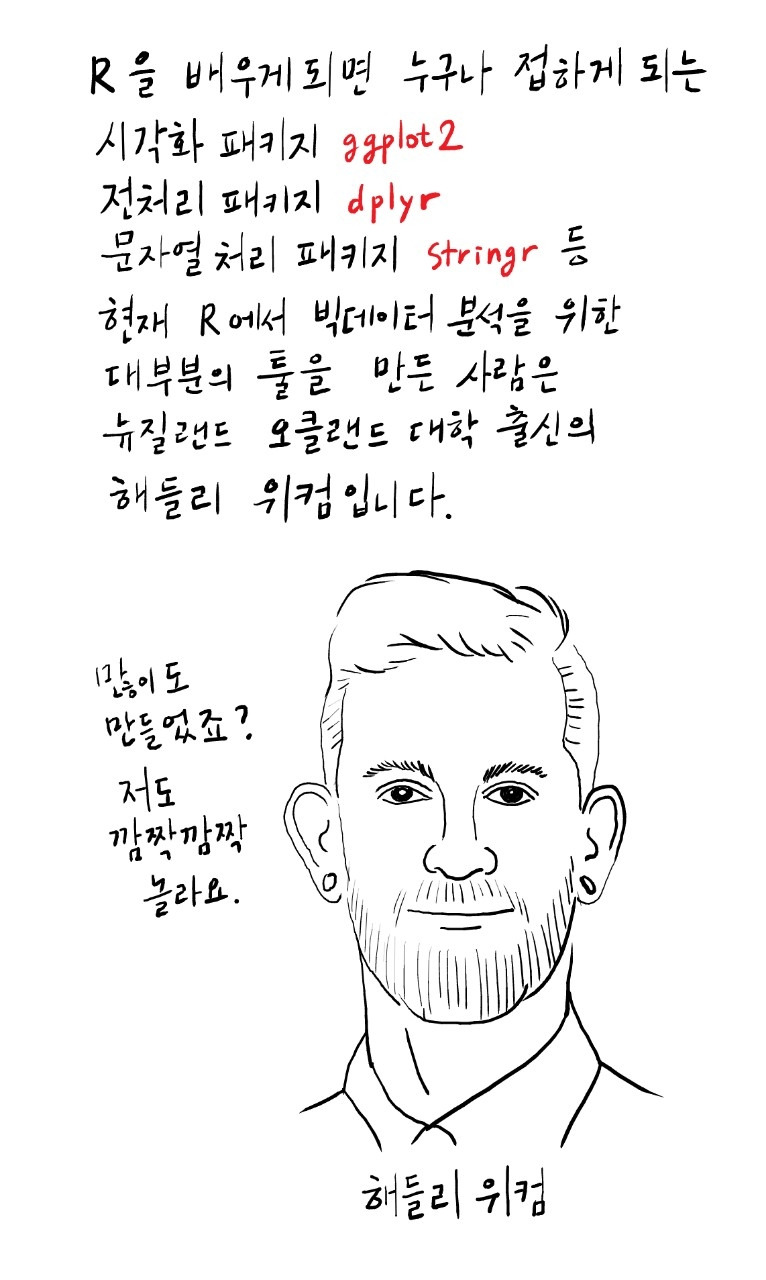 R을 배우게되면 누구나 접하게 되는
시각화 패키지 ggplot2
전처리 패키지 dplyr
문자열처리 패키지 stringr 등
현재 R에서 빅데이터 분석을 위한
대부분의 툴을 만든 사람은
뉴질랜드 오클랜드 대학 출신의
해들리 위컴입니다.
많이도
만들었죠?
저도
깜짝깜짝
놀라요.
해들리 위컴